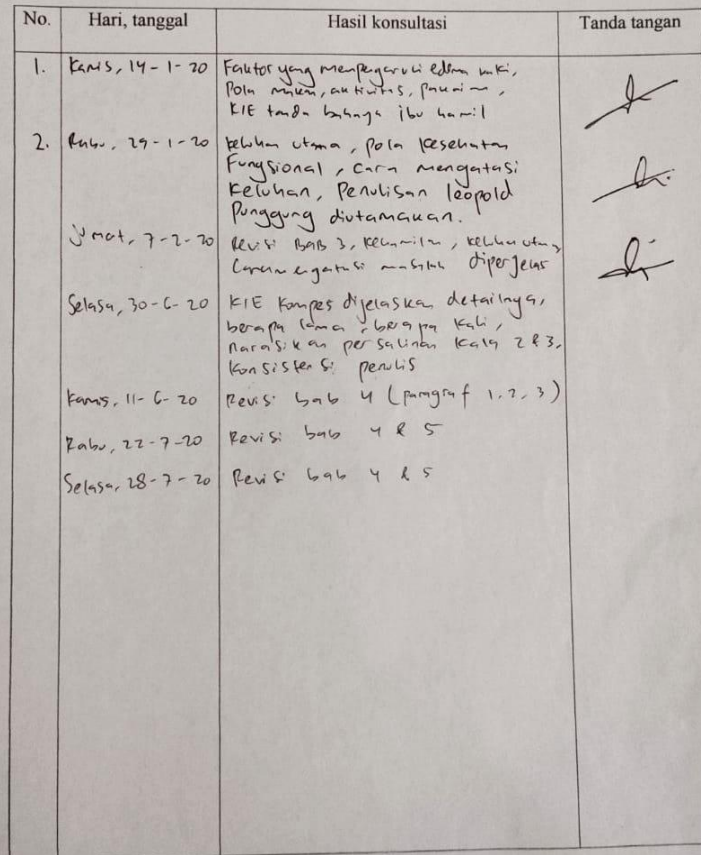 No. Hari, tanggal Hasil konsultasi Tanda tangan
1. Kamis, 14-1-20 Faktor yang mempengaruhi edema kaki,
Pola makan, aktivitas, pakaian,
KIE tanda bahaya ibu hamil
2. Rabu, 29-1-20 keluhan utama, pola kesehatan
Fungsional, cara mengatasi
Keluhan, Penulisan leopold
Punggung diutamakan.
Jumat, 7-2-20 Revisi BAB 3, kehamilan, keluhan utama
Cara mengatasi masalah diperjelas
Selasa, 30-6-20 KIE Kompes dijelaskan detailnya,
berapa lama, berapa kali,
narasikan persalinan kala 2 & 3,
Konsistensi penulis
Kamis, 11-6-20 Revisi bab 4 (paragraf 1, 2, 3)
Rabu, 22-7-20 Revisi bab 4 & 5
Selasa, 28-7-20 Revisi bab 4 & 5